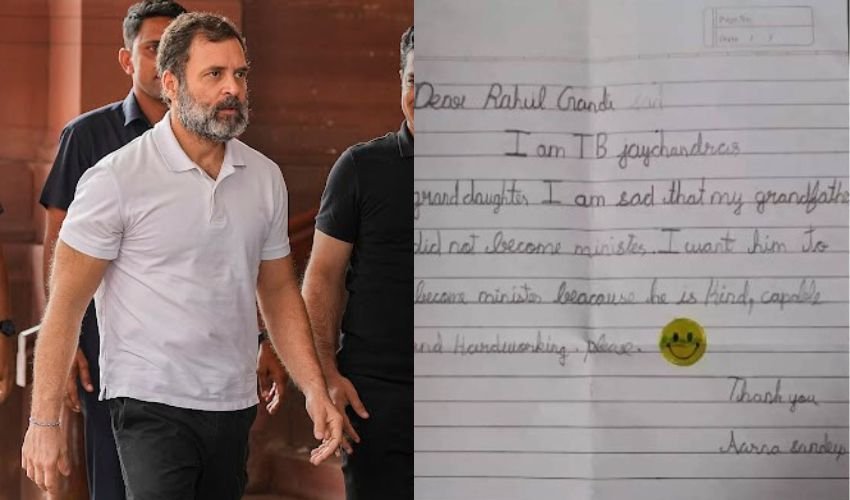 Page No.
Date / /
Dear Rahul Gandi
I am TB jaychandras
granddaughter I am sad that my grandfathe
did not become minister. I want him to
become minister beacause he is Kind, capable
and Hardworking. please.
Thank you
Aarna sandeep